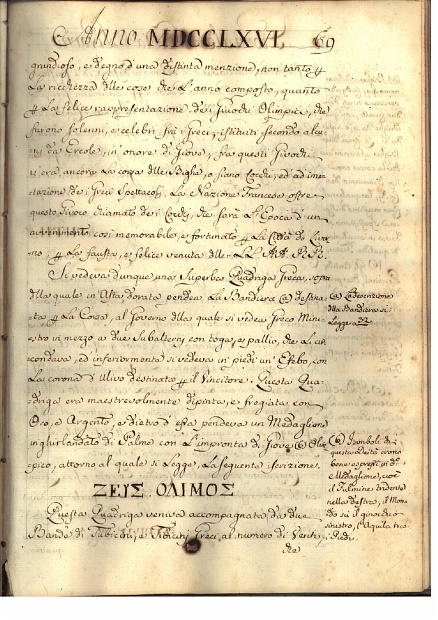 Anno MDCCLXVI. 69
grandioso, e degno d'una distinta menzione, non tanto p
La ricchezza delle cose che L'anno composto, quanto
p La felice rappresentazione dei Giuochi Olimpici, che
furono solenni, e celebri frà i Greci, istituiti secondo alcu-
ni da Ercole, in onore di Giove, fra questi Giuochi
vi era ancora La corsa delle Bighe, o siano Cocchi, ed ad imi-
tazione dei Greci Spettacoli, La Nazione Francese offre
questo Giuoco chiamato dei Cocchi, che farà L'Epoca d'un
avvenimento così memorabile, e fortunato p La Città di Livor-
no p La fausta, e felice venuta delle LL. AA. RR.
Si vedeva dunque una Superba Quadriga Greca, sopra
della quale in Asta dorata pendea La Bandiera (a) destina-
ta p La Corsa, al Governo della quale si vedea Greco Mini-
stro in mezzo a due Subalterni con toga, e pallio, che Lo cir-
condava, ed inferiormente si vedeva in piedi un Efebo, con
La corona d'Ulivo destinata p il Vincitore. Questa Qua-
driga era maestrevolmente dipinta, e fregiata con
Oro, e Argento, e dietro d'essa pendeva un Medaglione
inghirlandato di Palme con L'impronta di Giove (b) Olim-
pico, attorno al quale si Legge, La seguente iscrizione.
ΖΕΥΣ ΟΛΙΜΟΣ
Questa Quadriga veniva accompagnata da due
Bande di Tubicini, e Tibicini Greci, al numero di Venti,
che
(a) La descrizione
della Bandiera si
Leggerà
(b) I simboli di
questa Deità erono
bene espressi in do
Medaglione, con
il Fulmine tridente
nella destra, il Mon-
do sù il ginocchio
sinistro, e L'Aquila tra
i Piedi.